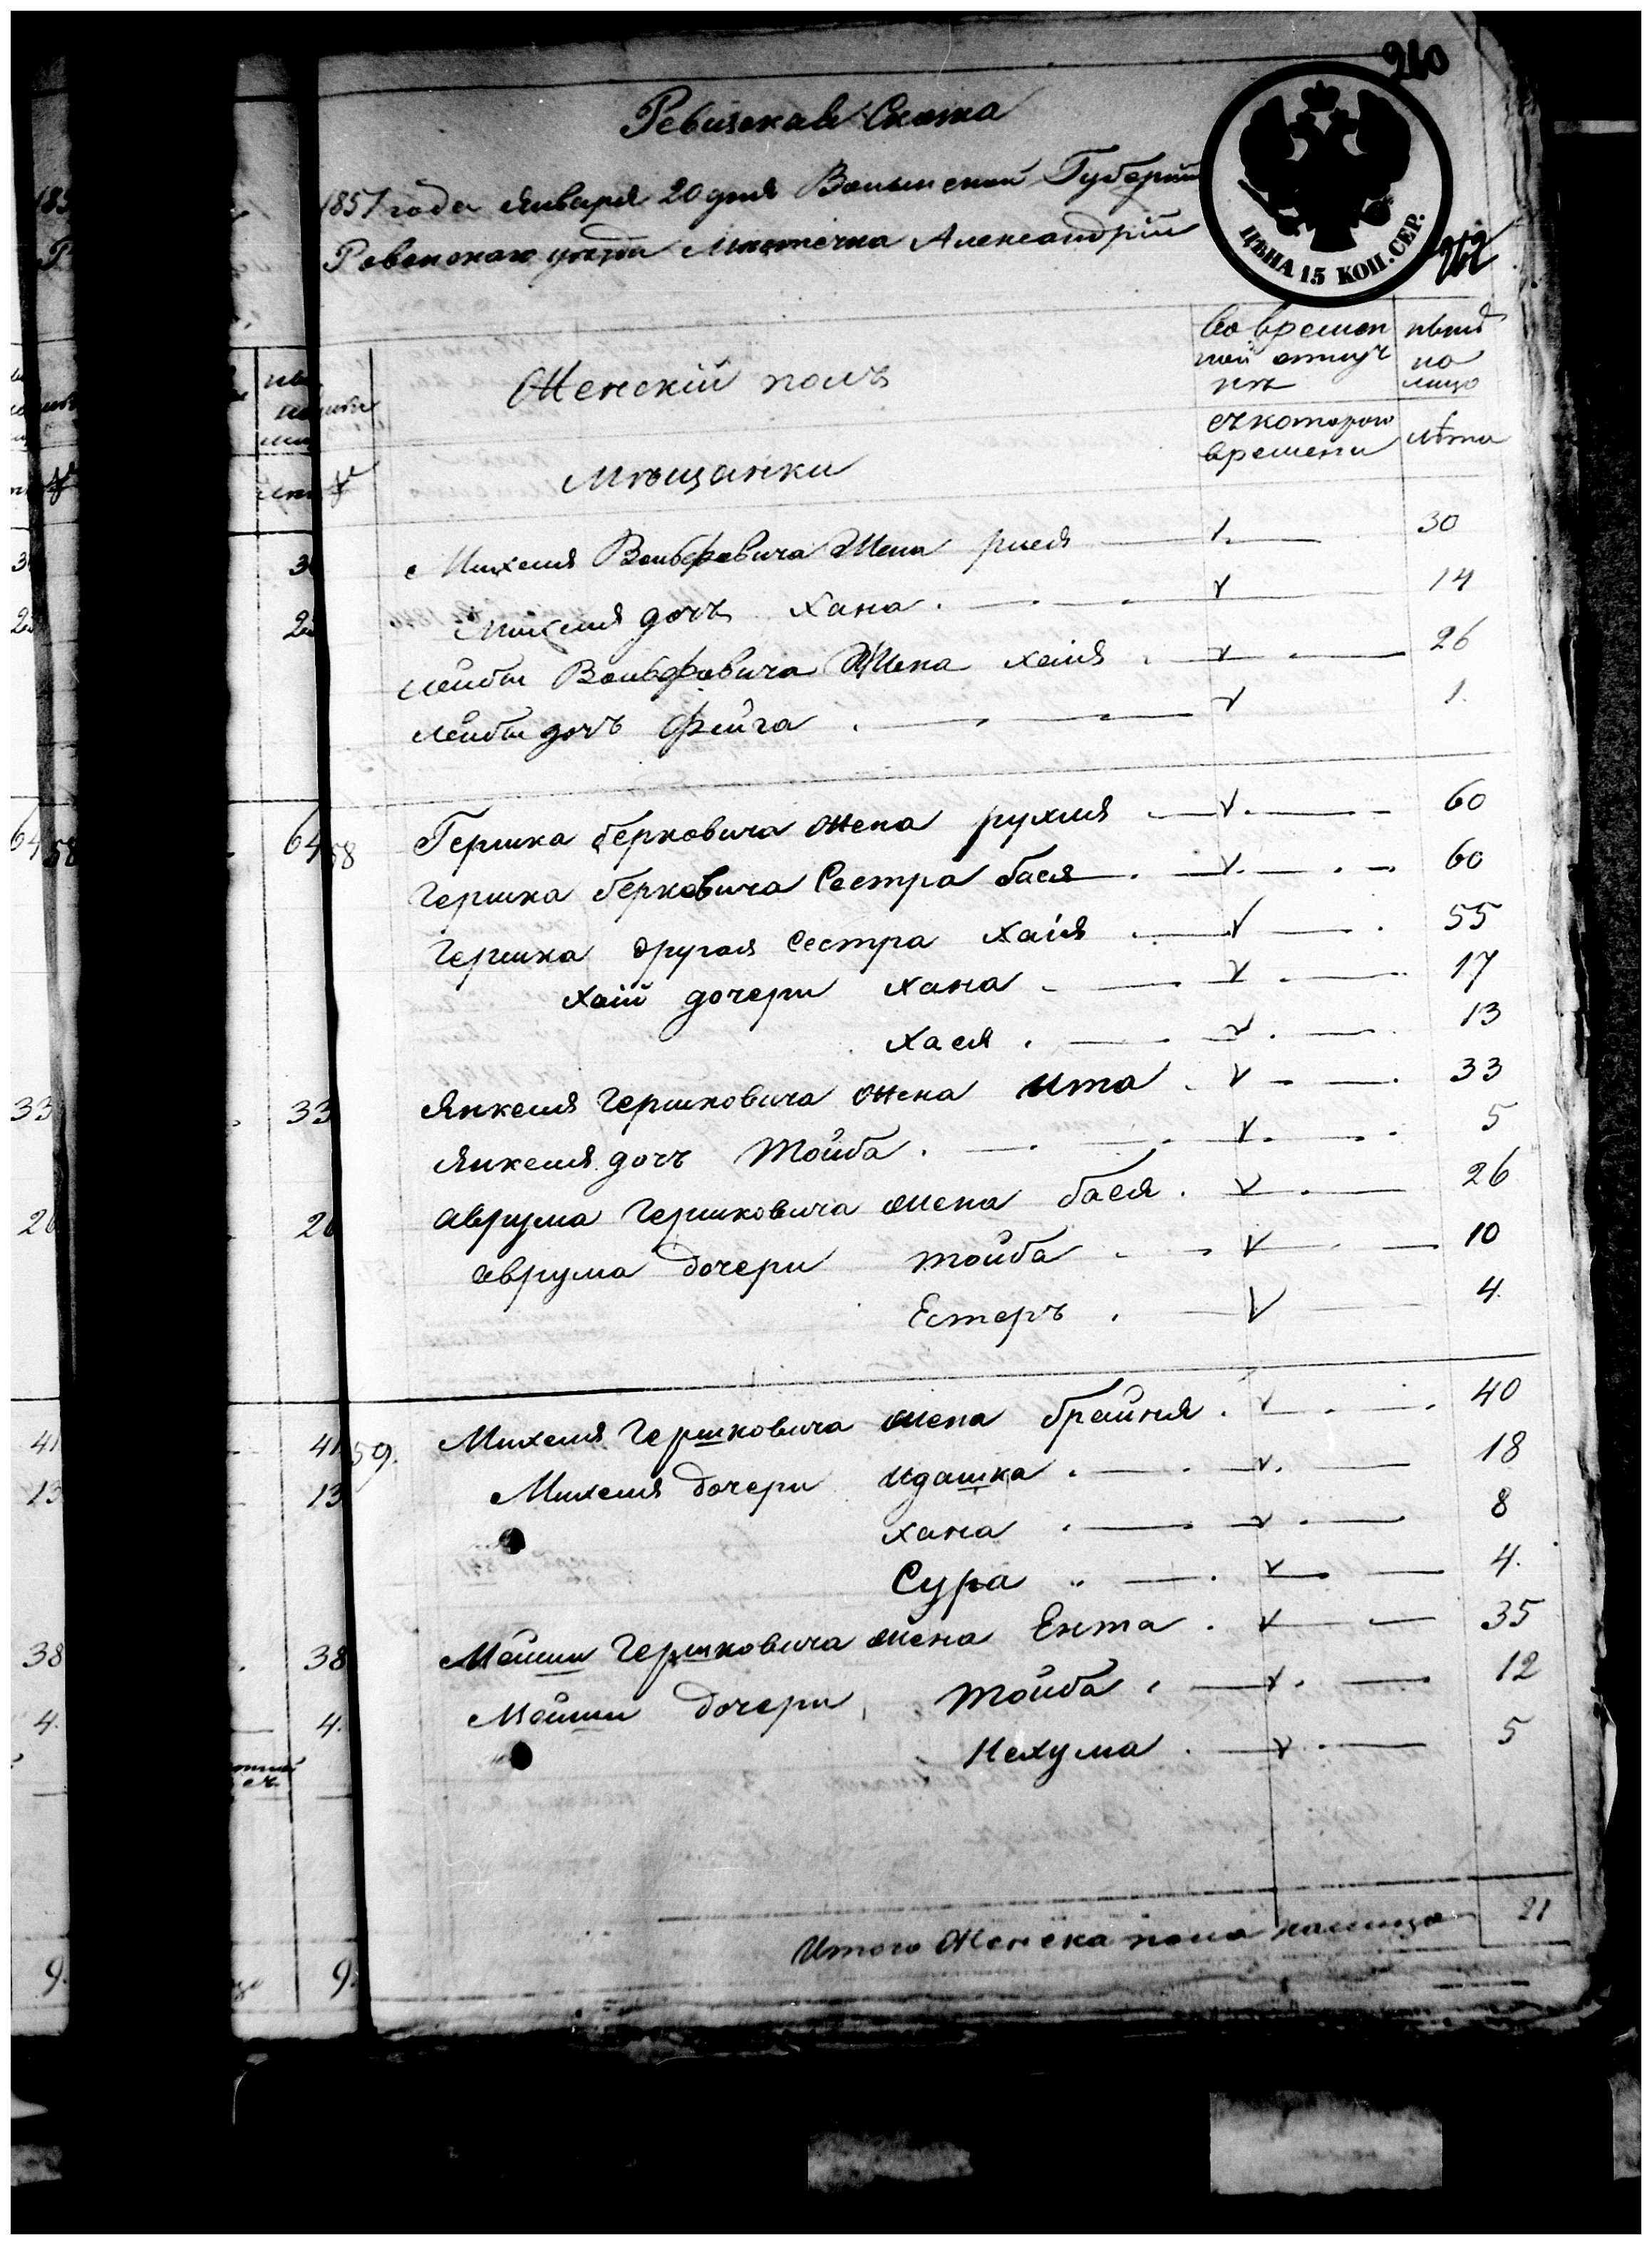 210
Ревизская Сказка
1857 года Января 20 дня Волынской Губерніи
Ровенскаго уѣзда Мѣстечка Александріи
ЦѢНА 15 КОП. СЕР.
262
Женскій полъ
Во времен
ной отлуч
кѣ
нынѣ
на
лицо
Мѣщанки
съ котораго
времени
лѣта
Михеля Вольфовича Жена 30
Михеля дочь Хана 14
Лейбы Вольфовича Жена хая 26
Лейбы дочь Фейга 1.
58 Гершка берковича жена рухля 60
Гершка берковича Сестра бася 60
Гершка другая Сестра Хаія 55
Хаіи дочери Хана 17
Хася 13
Янкеля Гершковича жена Ита 33
Янкеля дочь Тойба 5
Аврума Гершковича жена бася 26
Аврума дочери Тойба 10
Естеръ 4.
59. Михеля Гершковича жена брайня 40
Михеля дочери Идашка 18
Хана 8
Сура 4.
Мошки Гершковича жена Ента 35
Мошки дочери Тойба 12
Нехума 5
Итого Женска пола налицо 21